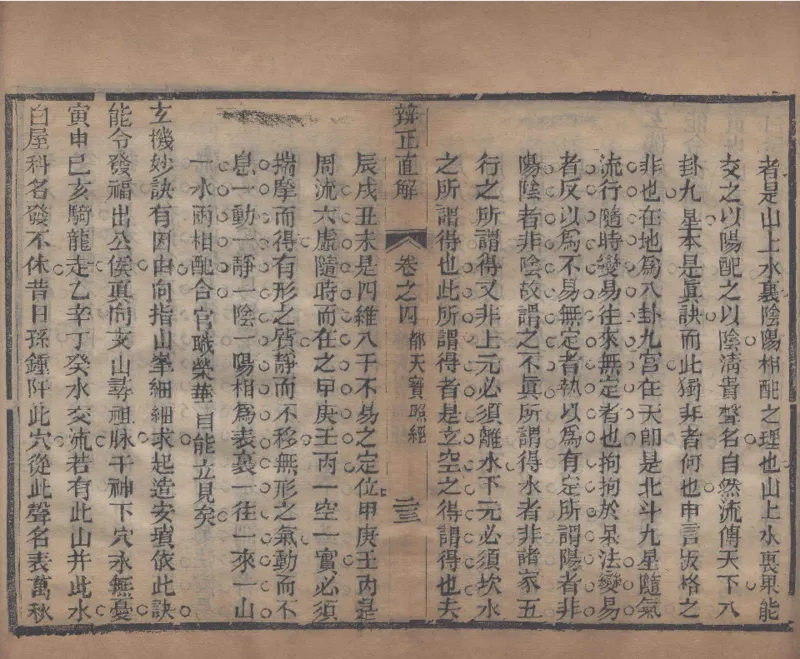 者是山上水裏陰陽相配之理也山上水裏果能
交之以陽配之以陰淸貴聲名自然流傳天下八
卦九星本是眞訣而此獨非者何也申言版格之
非也在地爲八卦九宮在天卽是北斗九星隨氣
流行隨時變易往來無定者也拘拘於呆法變易
者反以爲不易無定者執以爲有定所謂陽者非
陽陰者非陰故謂之不眞所謂得水者非諸家五
行之所謂得又非上元必須離水下元必須坎水
之所謂得也此所謂得者是立空之得謂得也夫
辨正直解
卷之四
都天寶照經
二三
辰戌丑未是四維八干不易之定位甲庚壬丙是
周流六虛隨時而在之甲庚壬丙一空一實必須
揣摩而得有形之質靜而不移無形之氣動而不
息一動一靜一陰一陽相爲表裏一往一來一山
一水兩相配合官職榮華自能立見矣
玄機妙訣有因由向指山峯細細求起造安墳依此訣
能令發福出公侯眞向支山尋祖脉干神下穴永無憂
寅申巳亥騎龍走乙辛丁癸水交流若有此山并此水
白屋科名發不休昔日孫鍾阡此穴從此聲名表萬秋